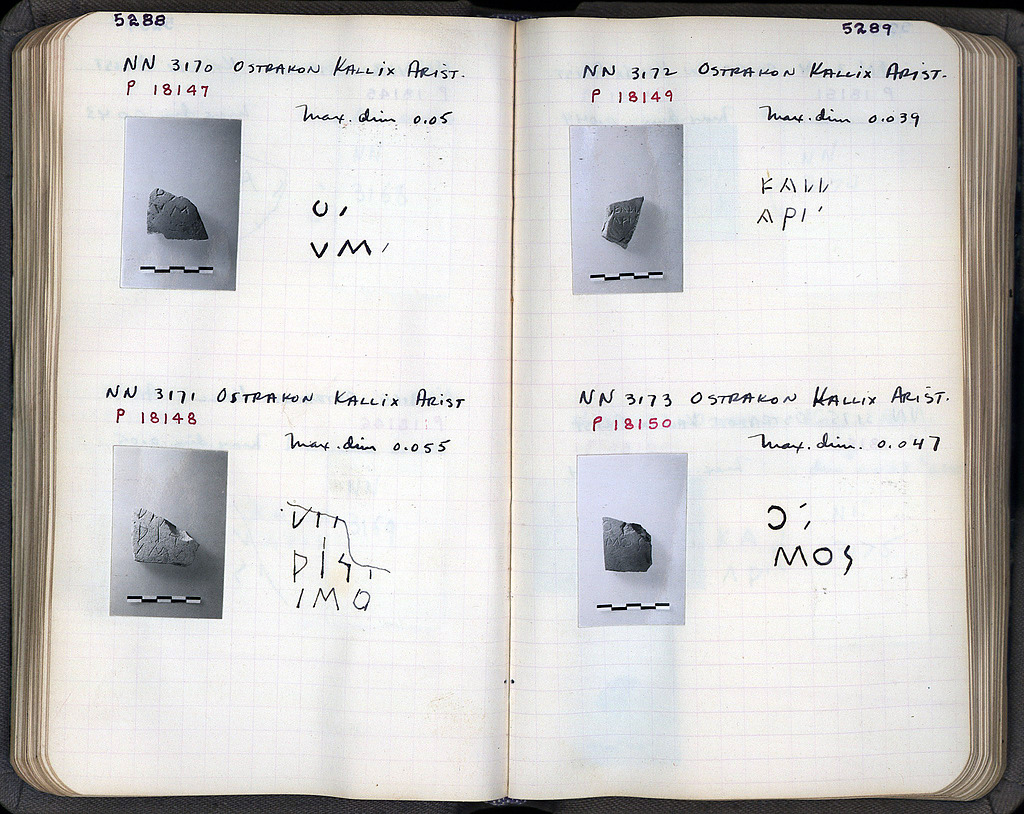 5288
NN 3170 OSTRAKON KALLIX ARIST.
P 18147
Max. dim 0.05
VM
NN 3171 OSTRAKON KALLIX ARIST
P 18148
Max. dim 0.055
ΙΜΟ
5289
NN 3172 OSTRAKON KALLIX ARIST.
P 18149
Max. dim 0.039
ΑΡΙ
NN 3173 OSTRAKON KALLIX ARIST.
P 18150
Max. dim. 0.047
ΜΟS